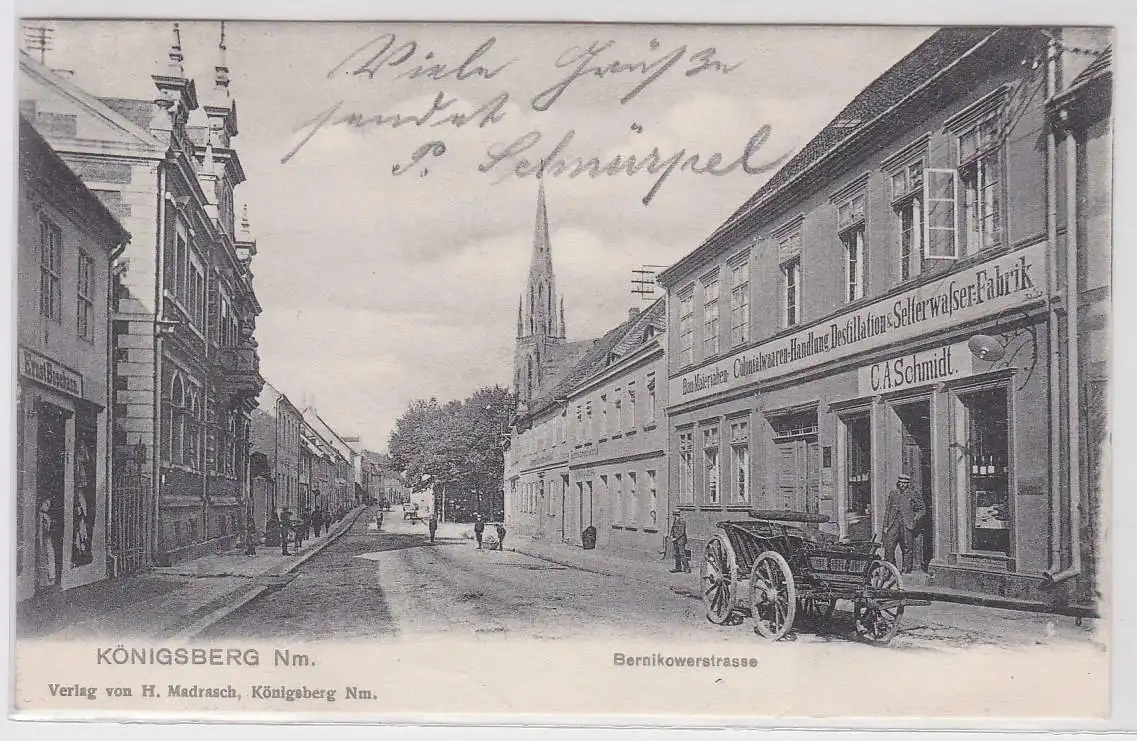 Viele Grüße
sendet
P. Schnürpel
Ernst
Bau Materialien Colonialwaaren-Handlung, Destillation & Selterwasser-Fabrik
C. A. Schmidt.
KÖNIGSBERG Nm.
Bernikowerstrasse
Verlag von H. Madrasch, Königsberg Nm.